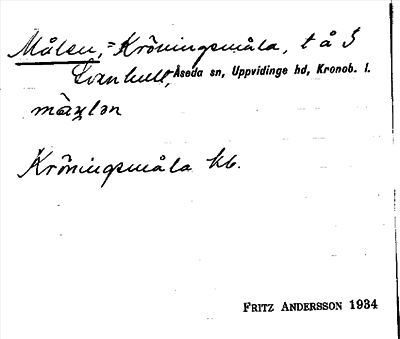 Målen, = Kröningsmåla, t å S
Svenhult, Åseda sn, Uppvidinge hd, Kronob. l.
Kröningsmåla kb.
FRITZ ANDERSSON 1934